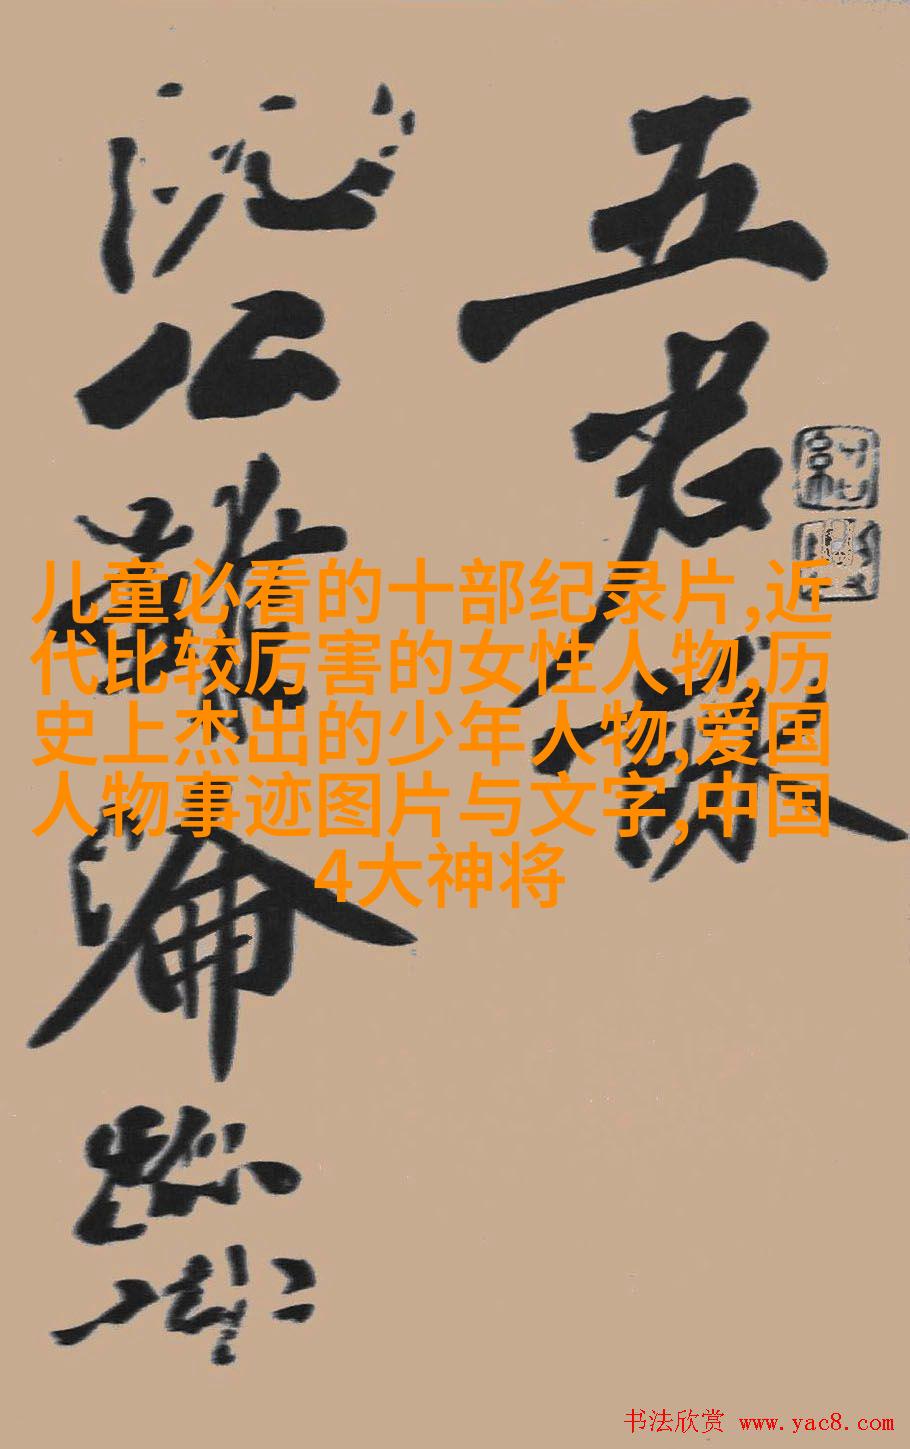 五君詠
阮公雖淪跡
儿童必看的十部纪录片,近
代比较厉害的女性人物,历
史上杰出的少年人物,爱国
人物事迹图片与文字,中国
4大神将
书法欣赏 www.yac8.com